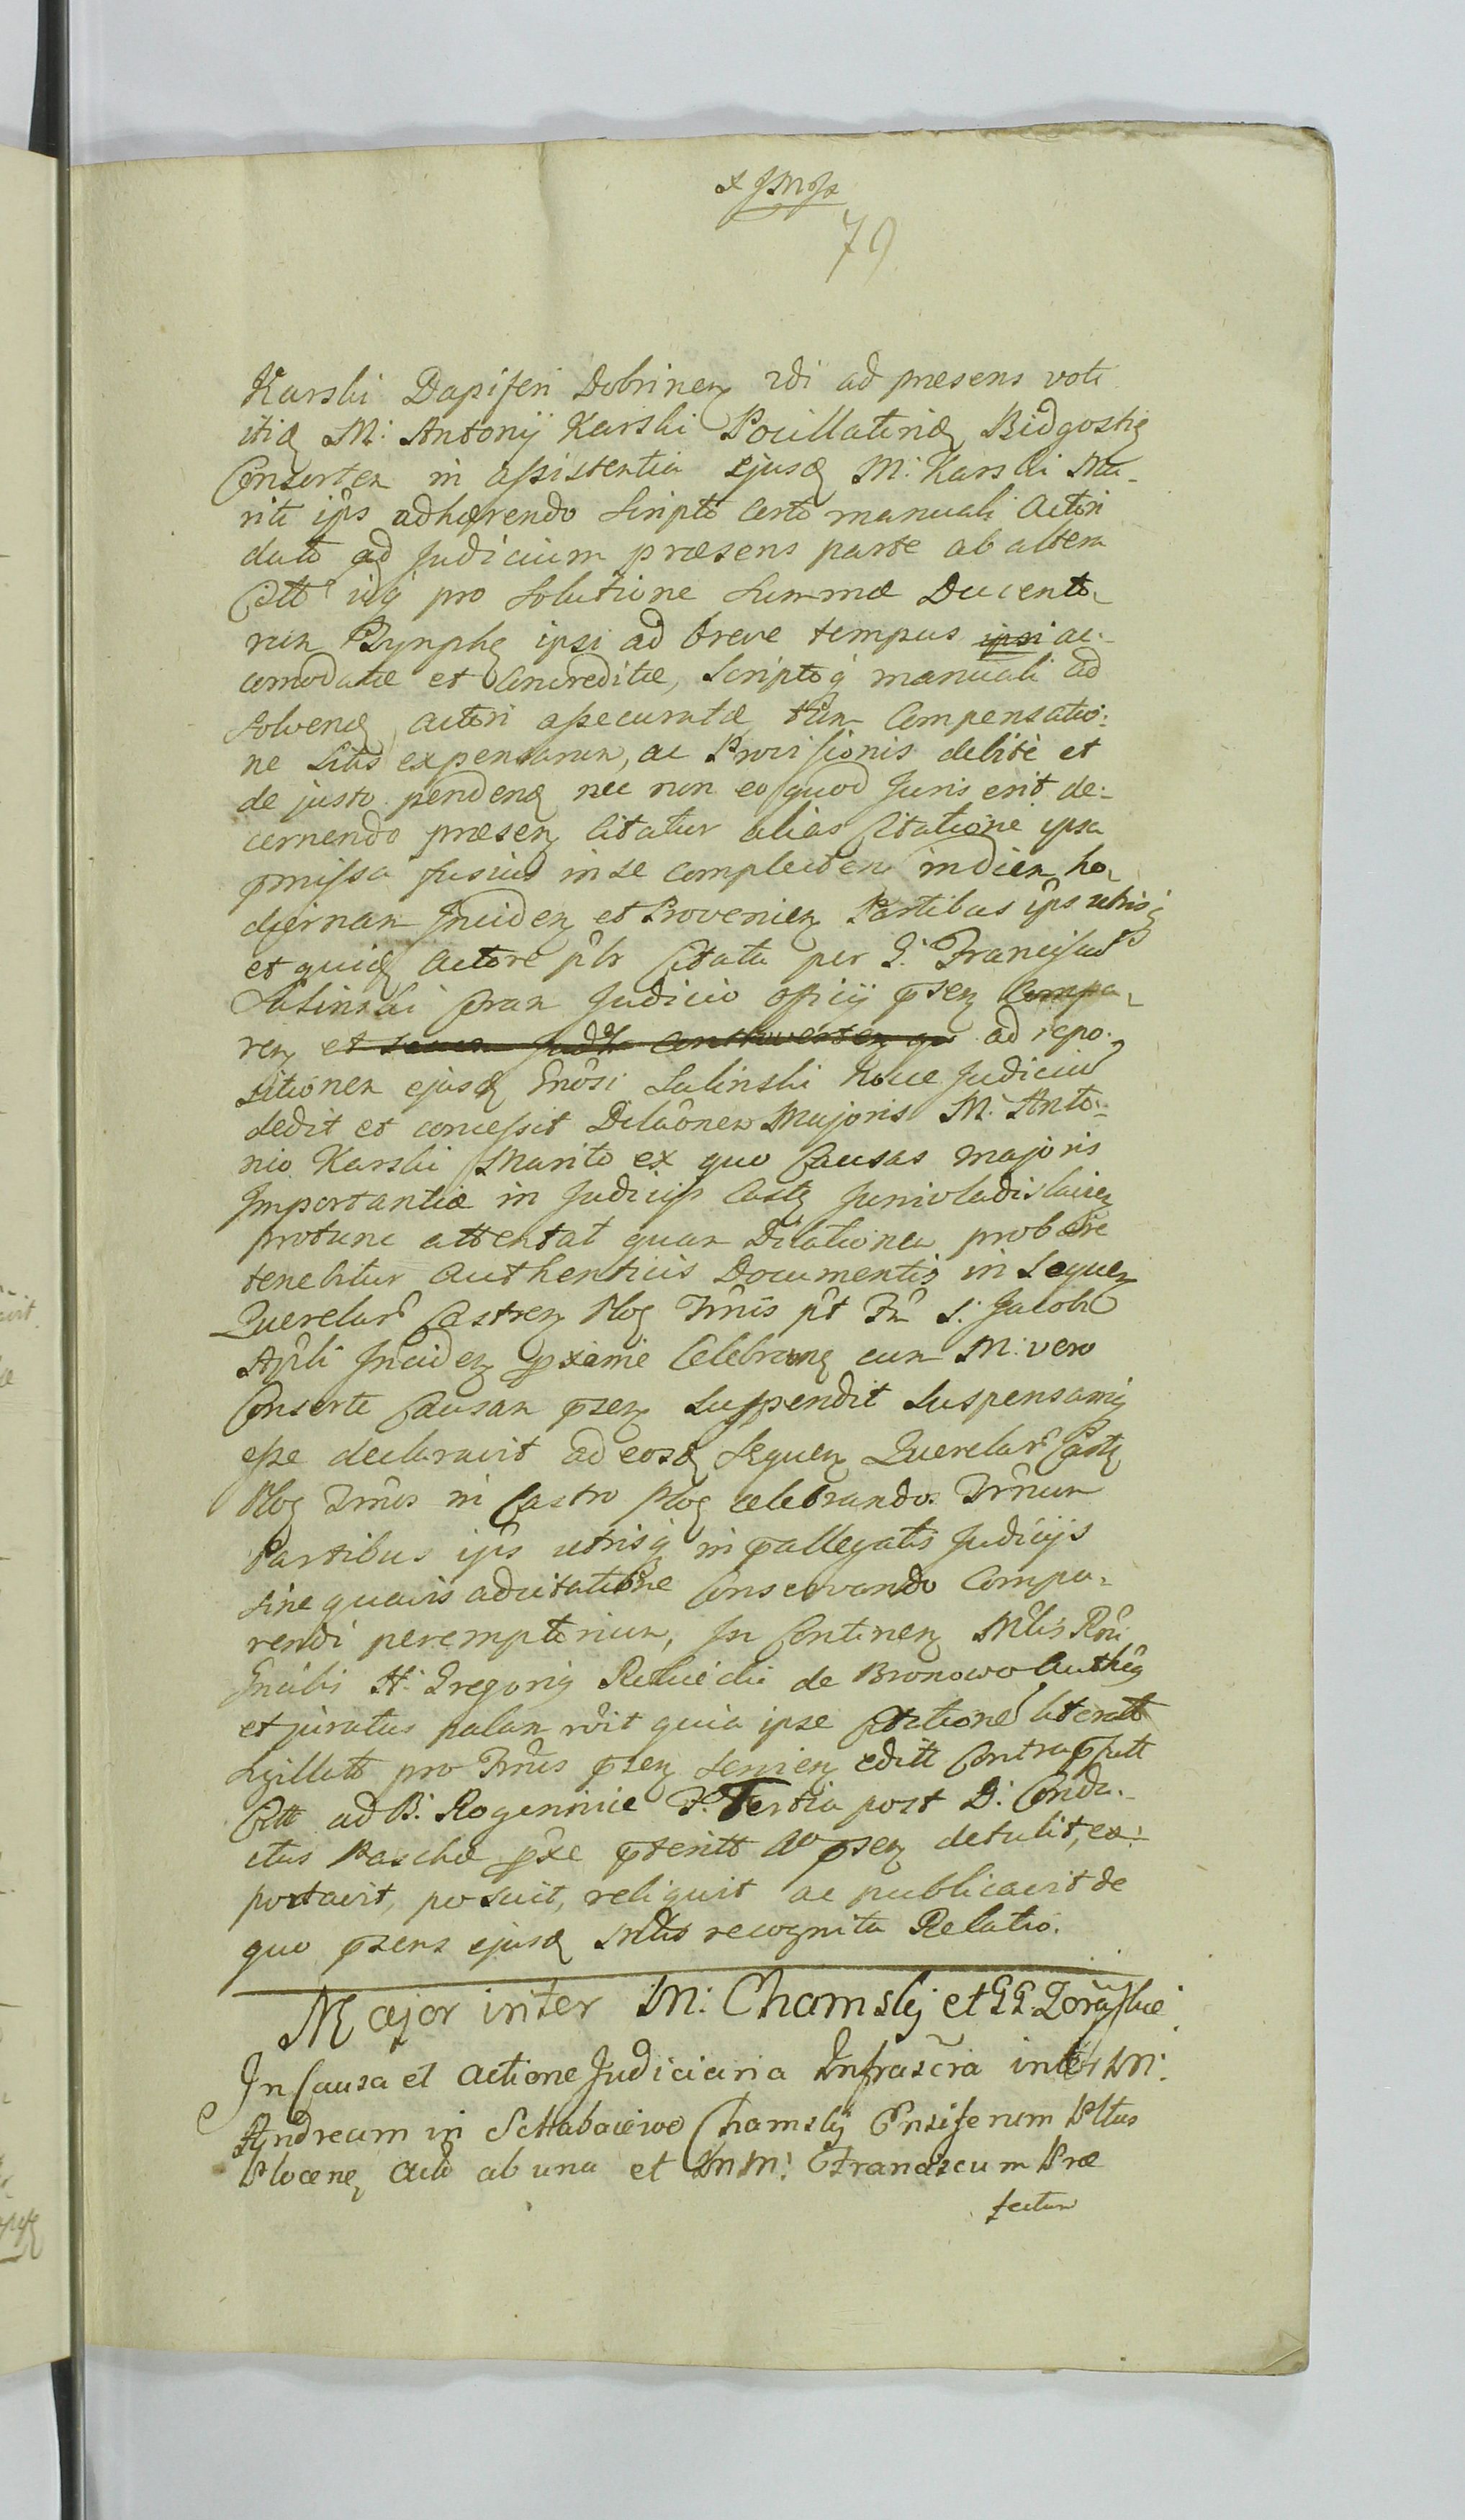 79
Karski Dapiferi Dobrinen ad praesens voti
M: Antonij Karski Pocillatorid Bidgostien
Consortem in assistentia ejusd M: Karski Ma-
riti ips adhaerendo scripto certo manuali Actori
dato ad Judicium praesens parte ab altera
pro solutione summae Ducento-
rum Tynph ipsi ad breve tempus ipsi ac-
comodatae et Concreditae, Scriptoq manuali ad
solvend actori assecuratae, tum Compensatio-
ne Litis expensarum, ac Provisionis debite et
de justo pendend nec non eo quod Juris erit de-
cernendo praesen Citatur alias Citatione ipsa
pmissa fusius in se complecten in diem ho-
diernam Inciden et Provenien Partibus ips utrisq
et quid Actore plr Citata per G: Franciscum
Salinski Coram Judicio officij psen Compa-
ren et ad repo-
sitionem ejusd Gnosi Salinski hocce Judicium
dedit et concessit Dilaonem Majoris M: Anto-
nio Karski Marito ex quo Causas majoris
Importantiae in Judicijs Castr Junivladislavien
protunc attentat quam Dilationem probare
tenebitur Authenticis Documentis in Sequen
Querelar Castren Ploc Trnis pt Fm S: Jacobi
Apli Inciden pxime Celebrand cum M: vero
Consorte Causam psen suspendit suspensamq
esse declaravit ad eosd Sequen Querelar Castr
Ploc Trnos in Castro Ploc celebrandos Trnum
Partibus ips utrisq in pallegatis Judicijs
sine quavis adcitatione Conservando Compa-
rendi peremptorium, In Continen Mlis Rni
H: Gregorig de Bronowo Authēg
et juratus palam rcit quia ipse Citatione literatt
Sigillatt pro Trnis psen servien editt Contra pfatt
Citt ad B: Rogennice F: Tertia post D: Condu-
ctus Paschae pxe pteritt Ao psen detulit, ex-
portavit, posuit, reliquit ac publicavit de
quo psens ejusd Mlis recognita Relatio.
Major inter M: Chamskij et GG
In Causa et Actione Judiciaria Infrascra inter M:
Andream in Chamskij Ensiferum Pltus
Plocen Actō ab una et MM: Franciscum Prae
fectum